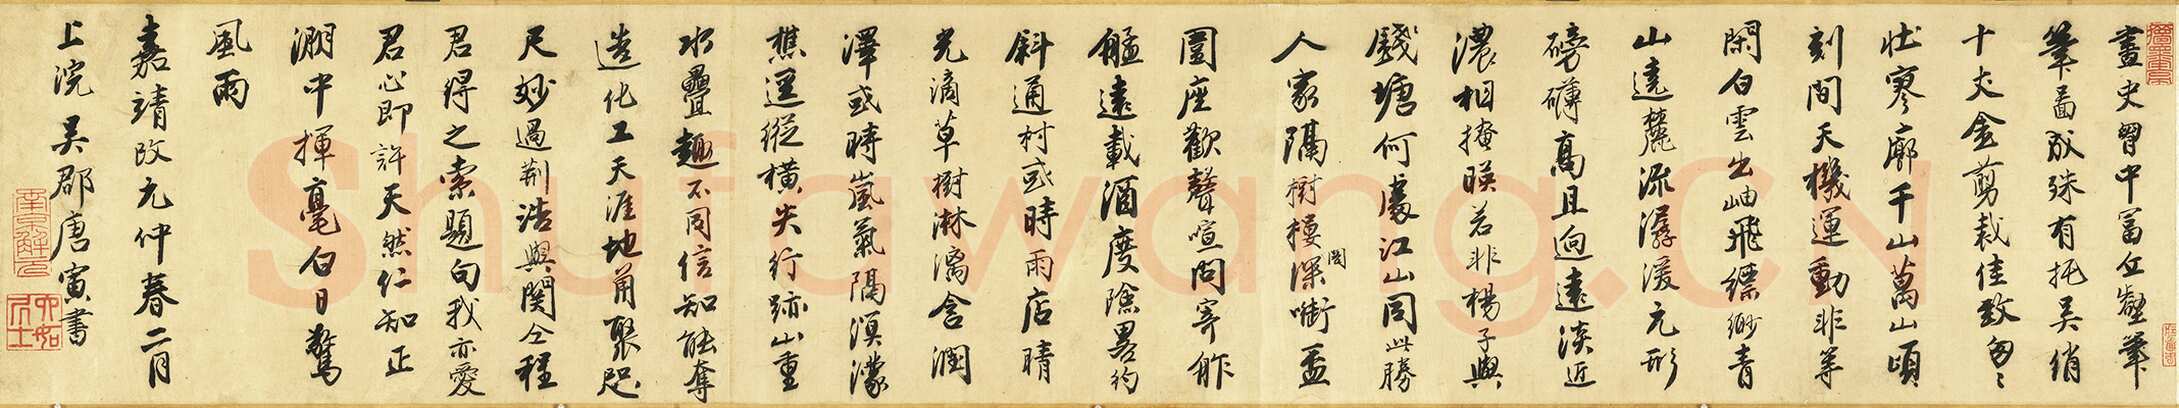 畫史胷中富丘壑筆
筆畐成殊有托吴綃
十丈金剪裁佳致匆匆
壮寥廓千山萬山頃
刻間天機運動非等
閑白雲出岫飛縹緲青
山遶麓流潺湲元形
磅礴高且迥遠淡近
濃相掩暎若非楊子與
錢塘何處江山同此勝
人家隔樹樓閣深喞盃
圕座歡聲喧問寄舴
艋遠載酒度險畧彴
斜通村或時雨店晴
光滴草樹淋漓含潤
澤或時嵐氣隔溟濛
樵逕縱橫尖行跡山重
水疊趣不同信知能奪
造化工天涯地角聚咫
尺妙過荆浩與関仝程
君得之索題句我亦愛
君心即許天然仁知正
渊中揮毫白日驚
風雨
嘉靖改元仲春二月
上浣吴郡唐寅書
南京解元
六如居士
Shufawang.CN